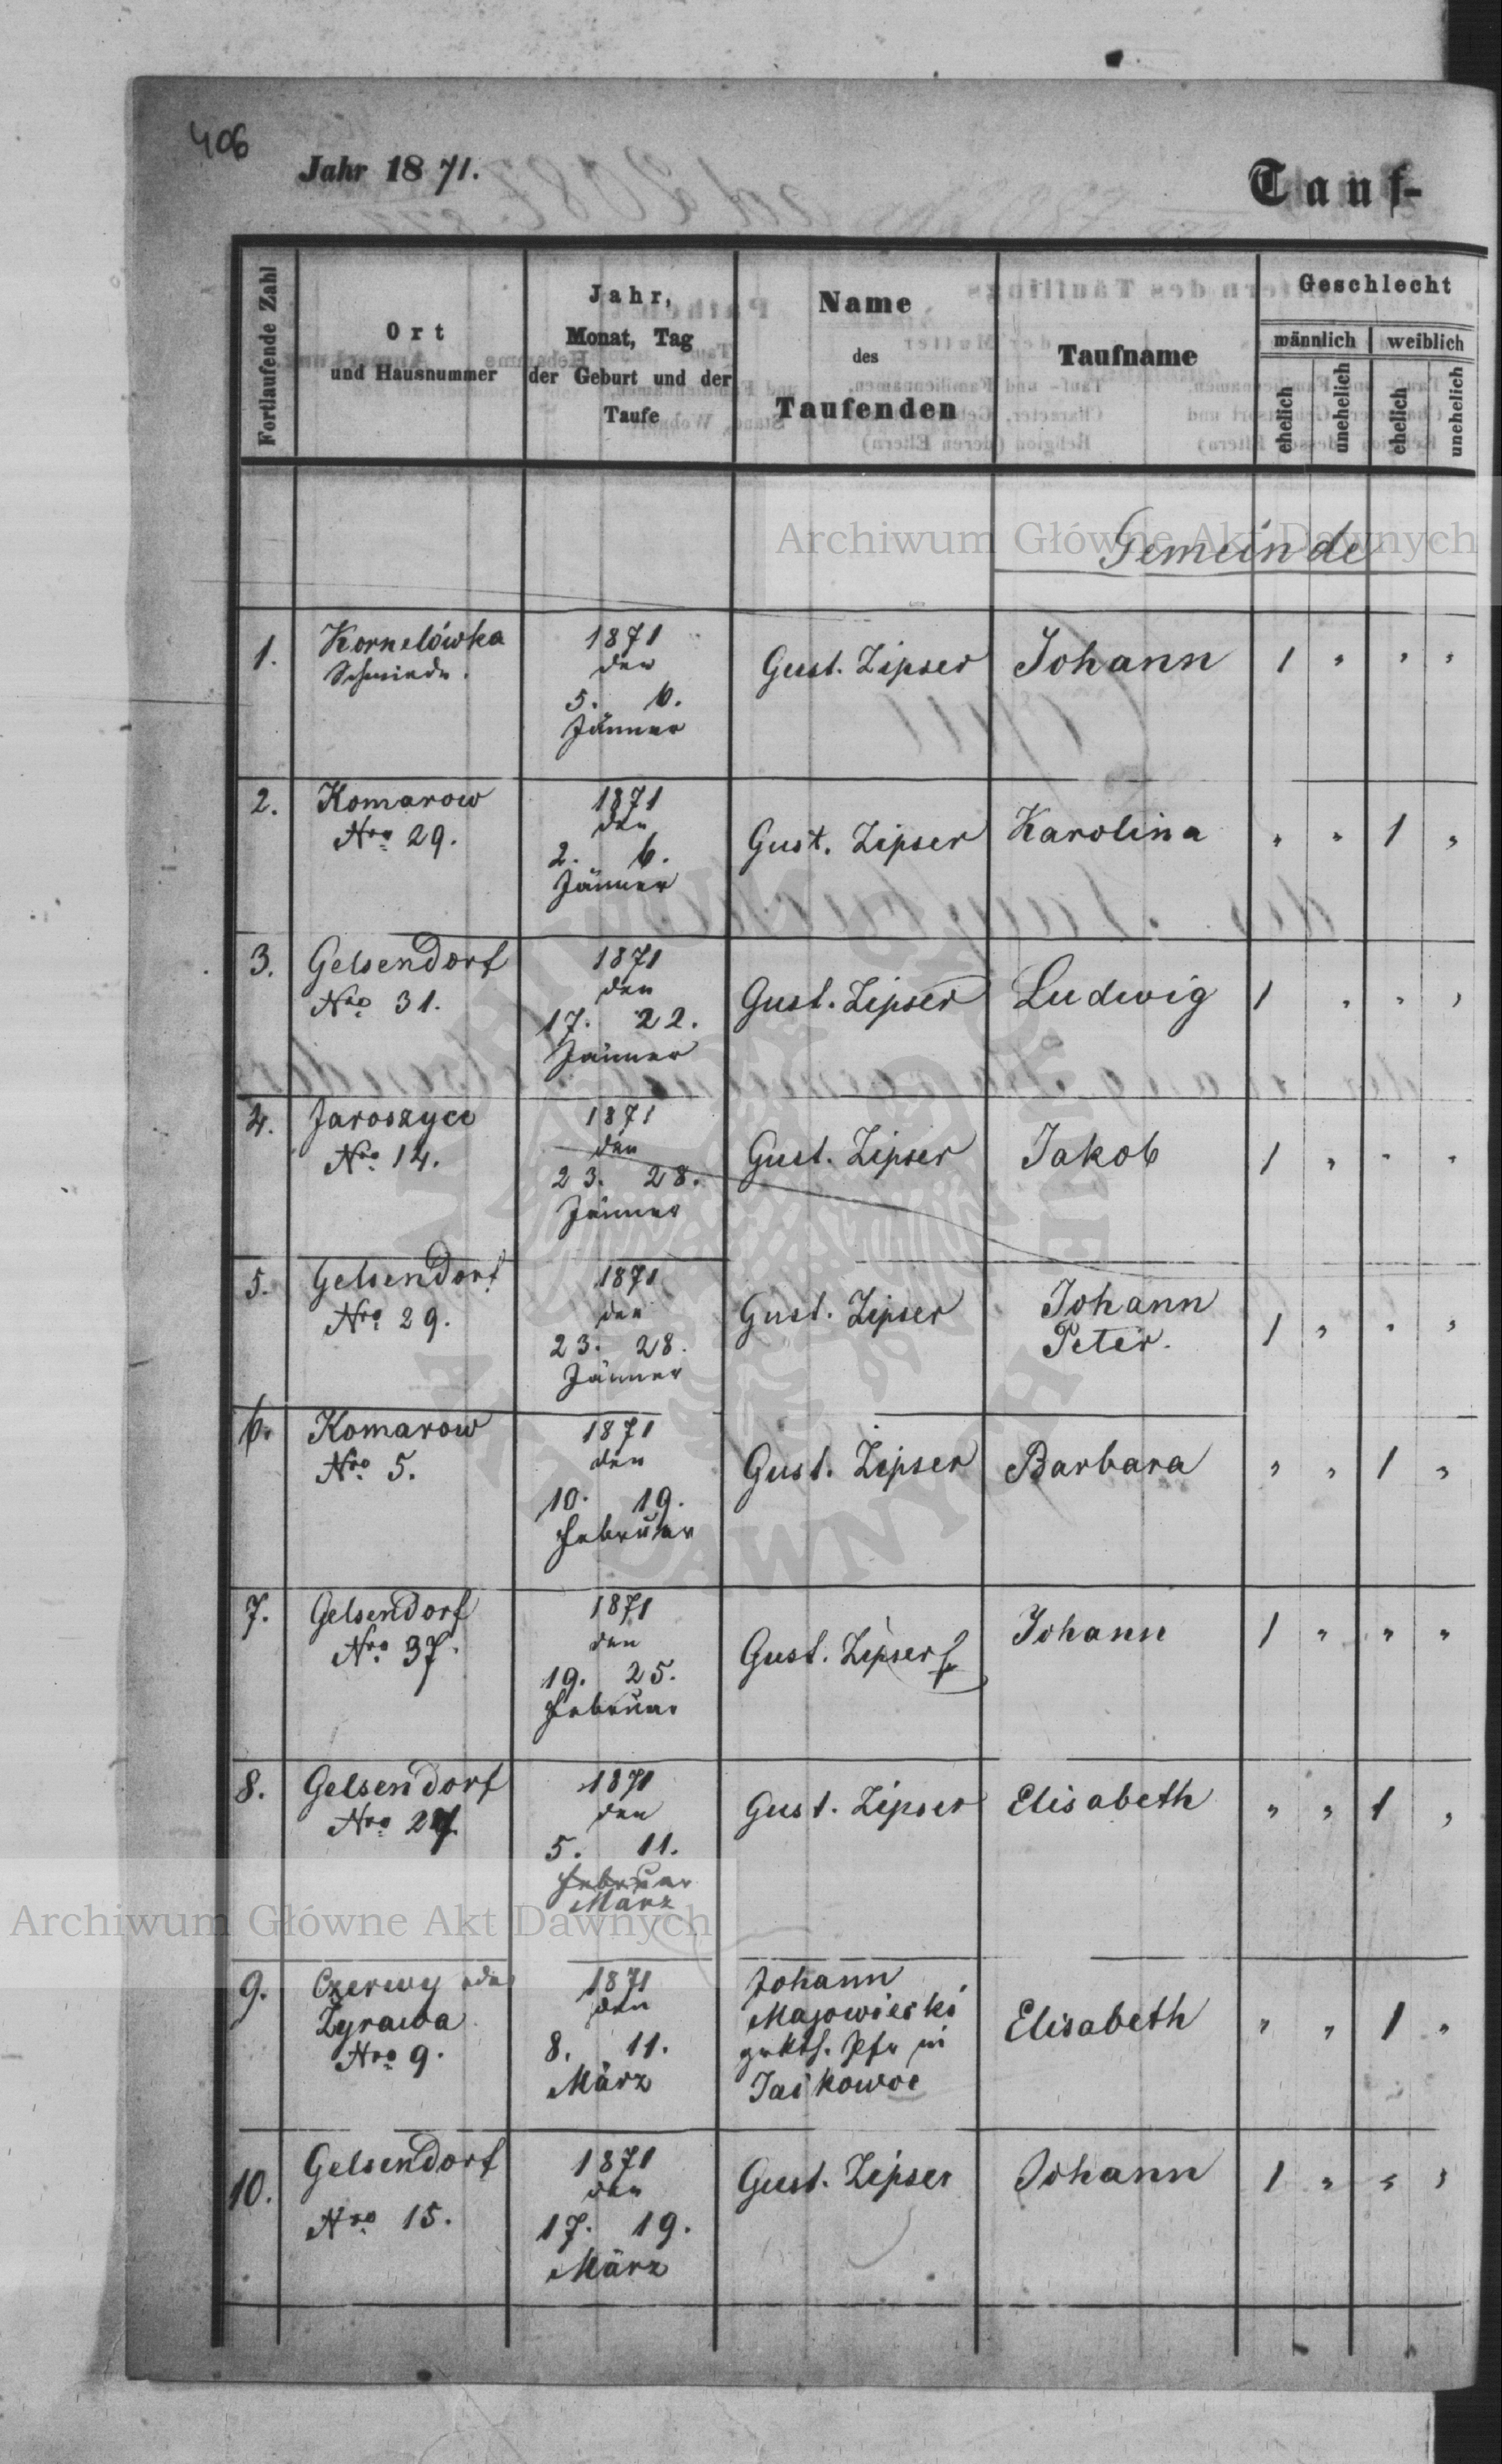 406
Jahr 1871.
Tauf-
Fortlaufende Zahl
Ort
und Hausnummer
Jahr,
Monat, Tag
der Geburt und der
Taufe
Name
des
Taufenden
Taufname
Geschlecht
männlich
weiblich
ehelich
unehelich
ehelich
unehelich
Archiwum Główne Akt Dawnych
Gemeinde
1.
Kornelówka
Schmiede.
1871
den
5. 6.
Jänner
Gust. Zipser
Johann
1 " " "
2.
Komarow
Nro 29.
1871
den
2. 6.
Jänner
Gust. Zipser
Karolina
" " 1 "
3.
Gelsendorf
Nro 31.
1871
den
17. 22.
Jänner
Gust. Zipser
Ludwig
1 " " "
4.
Jaroszyce
Nro 14.
1871
den
23. 28.
Jänner
Gust. Zipser
Jakob
1 " " "
5.
Gelsendorf
Nro 29.
1871
den
23. 28.
Jänner
Gust. Zipser
Johann
Peter.
1 " " "
6.
Komarow
Nro 5.
1871
den
10. 19.
Februar
Gust. Zipser
Barbara
" " 1 "
7.
Gelsendorf
Nro 37.
1871
den
19. 25.
Februar
Gust. Zipser
Johann
1 " " "
8.
Gelsendorf
Nro 27
1871
den
5. 11.
Februar
März
Gust. Zipser
Elisabeth
" " 1 "
Archiwum Główne Akt Dawnych
9.
Żyrawa
Nro 9.
1871
den
8. 11.
März
Johann
Majowieski
in
Elisabeth
" " 1 "
10.
Gelsendorf
Nro 15.
1871
den
17. 19.
März
Gust. Zipser
Johann
1 " " "
ARCHIWUM GŁÓWNE AKT DAWNYCH